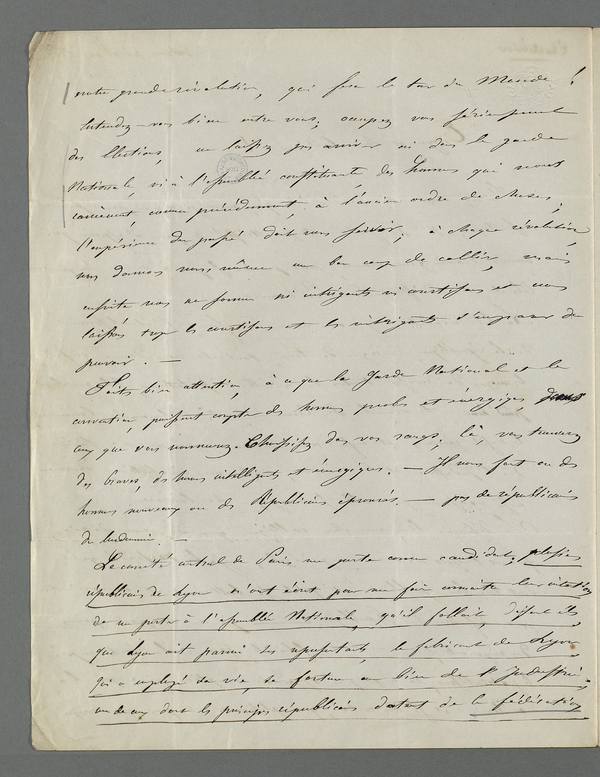 notre grande révolution, qui fera le tour du Monde !
Entendez-vous bien entre vous; occupez vous sérieusement
des Elections, ne laissez pas arriver ni dans la garde
Nationale, ni à l'assemblée constituante, des hommes qui nous
ramènent, comme précédemment, à l'ancien ordre de choses;
l'expérience du passé doit nous servir; à chaque révolution
nous donnons nous même un bon coup de collier, mais
ensuite nous ne sommes ni intrigants ni courtisans et nous
laissons trop les courtisans et les intrigants s'emparer du
pouvoir. —
Faites bien attention, à ce que la Garde National et la
convention, puissent compter des hommes probes et énergiques, dans
ceux que vous nommerez. Choisissez dans vos rangs; là, vous trouverez
des braves, des hommes intelligents et énergiques. — Il nous faut ou des
hommes nouveaux ou des Républicains éprouvés. — pas de républicains
du lendemain. —
Le comité central de Paris me porte comme candidat; plusieurs
républicains de Lyon m'ont écrit pour me faire connaitre leur intention
de me porter à l'assemblée Nationale, qu'il fallait, disent ils,
que Lyon ait parmi ses représentants, le fabricant de Lyon
qui a employé sa vie, sa fortune au bien de l'Industrie,
un de ceux dont les principes républicains datent de la fédération